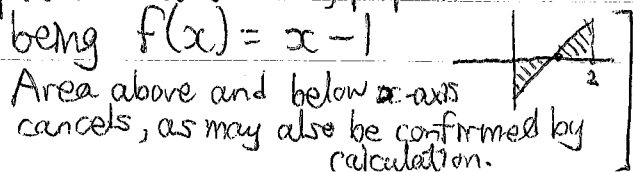 being f(x) = x - 1
2
Area above and below x-axis
cancels, as may also be confirmed by
calculation.